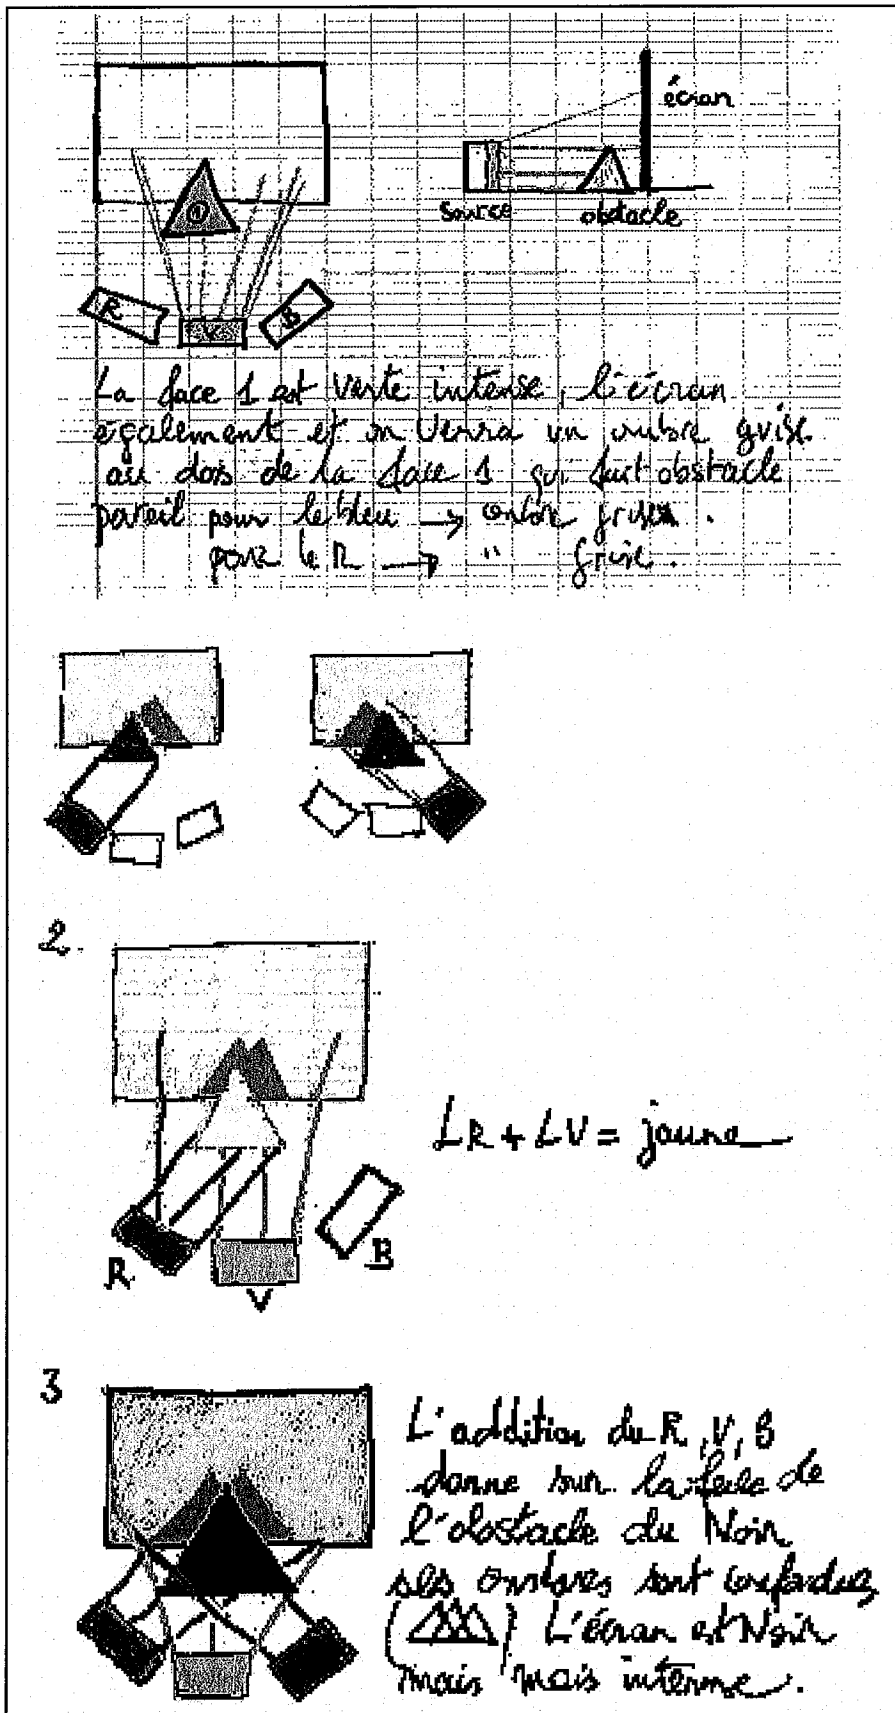 écran
source
obstacle
1
R
V
B
La face 1 est verte intense, l'écran
également et on verra un ombre grise
au dos de la face 1 qui fait obstacle
pareil pour le bleu → ombre grise.
pour le R → " grise.
2.
LR + LV = jaune
R
V
B
3
L'addition du R, V, B
donne sur la face de
l'obstacle du Noir
ses ombres sont confondues
( ) L'écran est Noir
mais mais intense.